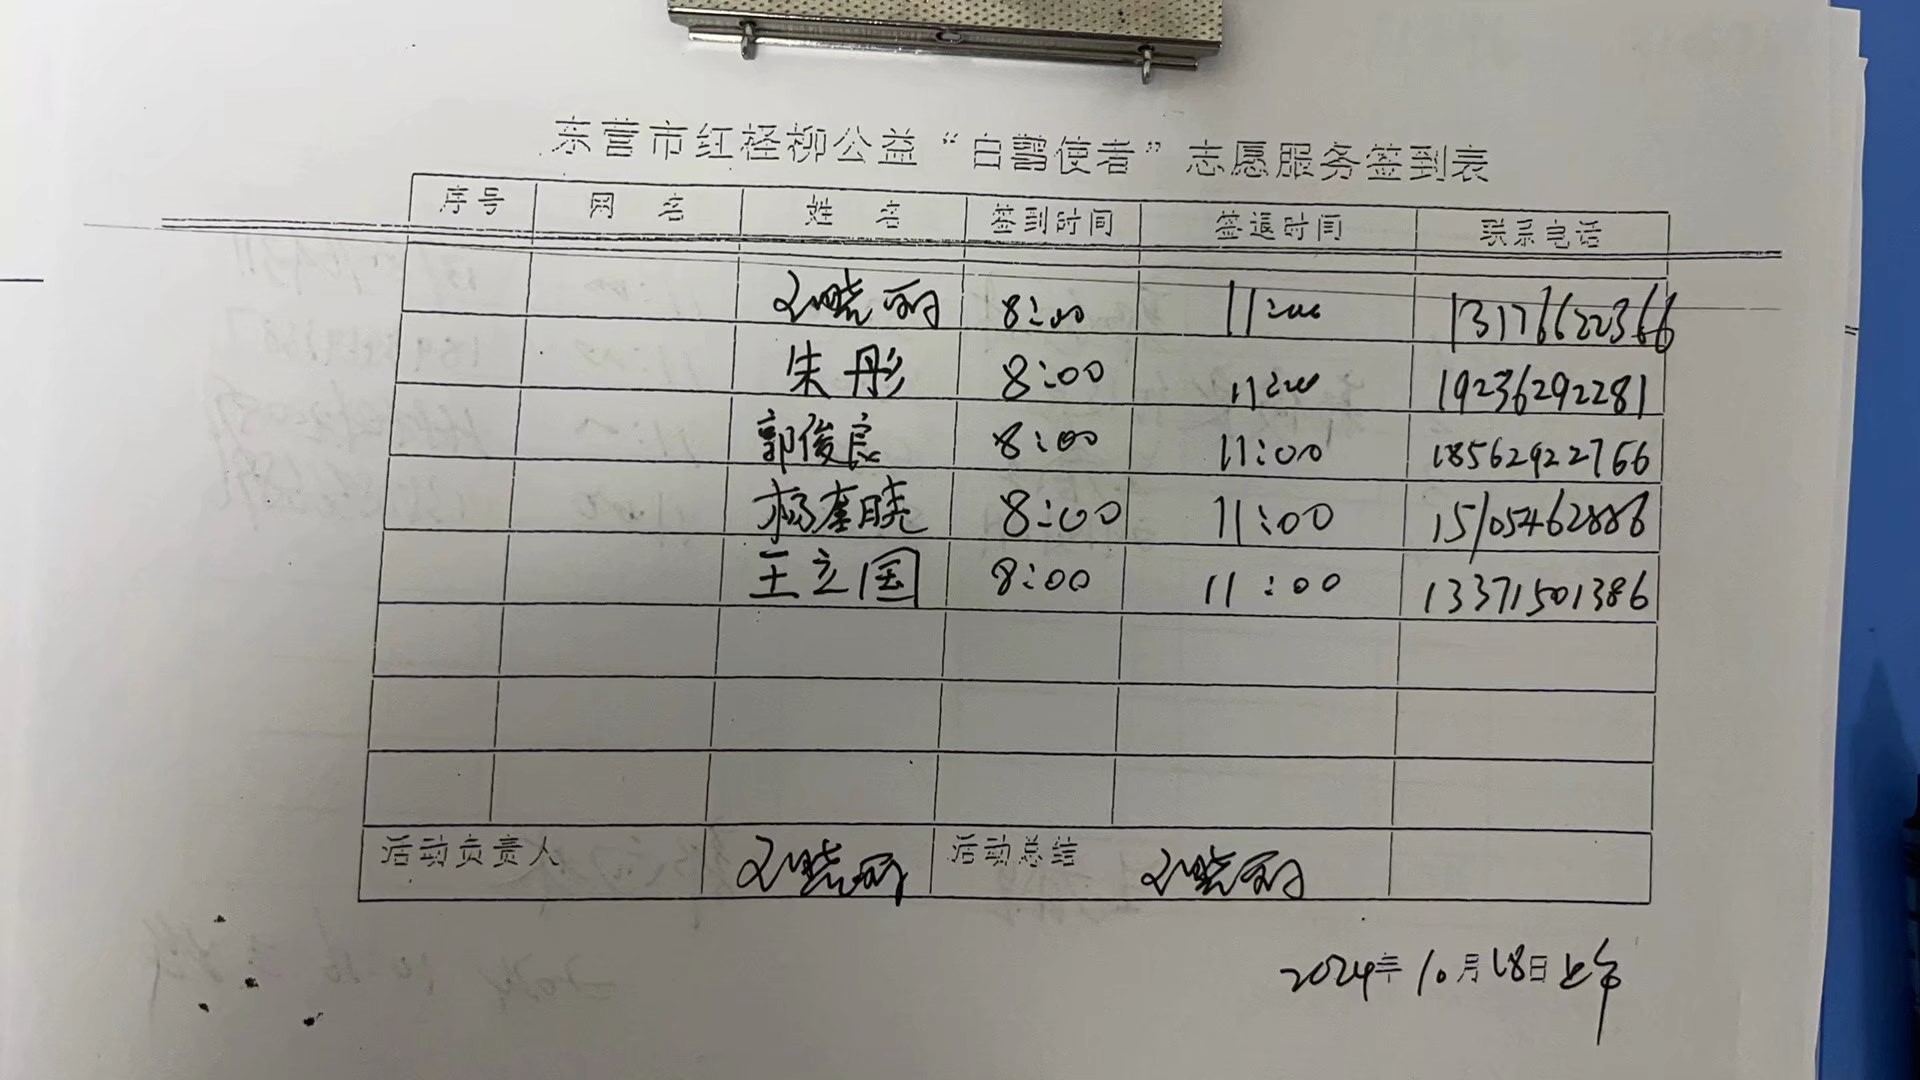 东营市红柽柳公益“白鹳使者”志愿服务签到表
序号 网名 姓名 签到时间 签退时间 联系电话
刘晓丽 8:00 11:00 13176622366
朱彤 8:00 11:00 19236292281
郭俊良 8:00 11:00 18562922766
杨奎晓 8:00 11:00 15105462886
王立国 8:00 11:00 13371501386
活动负责人 刘晓丽 活动总结 刘晓丽
2024年10月18日上午